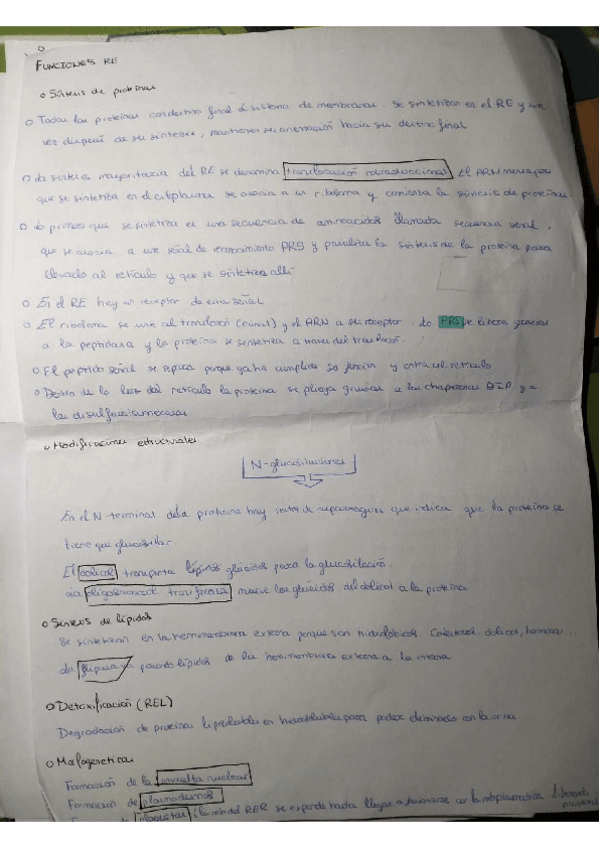 FUNCIONES RE
o Síntesis de proteínas
o Todas las proteínas con destino final el sistema de membranas. se sintetizan en el RE y una
vez después de su síntesis, mantienen su orientación hacia su destino final
o La síntesis mayoritaria del RE se denomina translocación cotraduccional. El ARN mensajero
que se sintetiza en el citoplasma se asocia a un ribosoma y comienza la síntesis de proteínas.
o Lo primero que se sintetiza es una secuencia de aminoácidos llamada secuencia señal,
que se asocia a una señal de reconocimiento PRS y paraliza la síntesis de la proteína para
llevarlo al retículo y que se sintetice allí
o En el RE hay un receptor de esa señal
o El ribosoma se une al translocón (canal) y el ARN a su receptor. La PRS se libera gracias
a la peptidasa y la proteína se sintetiza a través del translocón.
o El péptido señal se separa porque ya ha cumplido su función y entra al retículo
o Dentro de la luz del retículo la proteína se pliega gracias a las chaperonas BIP y a
las disulfuroisomerasas
o Modificaciones estructurales
N-glucosilaciones
En el N-terminal de la proteína hay que indica que la proteína se
tiene que glucosilar.
El dolicol transporta lípidos glúcidos para la glucosilación.
La oligosacaril transferasa mueve los glúcidos del dolicol a la proteína
o Síntesis de lípidos
Se sintetizan en la hemimembrana externa porque son hidrofóbicos. Colesterol, dolicol, hormona...
La flipasa pasando lípidos de la hemimembrana externa a la interna
o Detoxificación (REL)
Degradación de proteínas liposolubles en hidrosolubles para poder eliminarlo en la orina
o Malogenética
Formación de la envuelta nuclear
Formación de plasmodesmos
(la mb del RER se expande hasta llegar a fusionarse con la mb plasmática